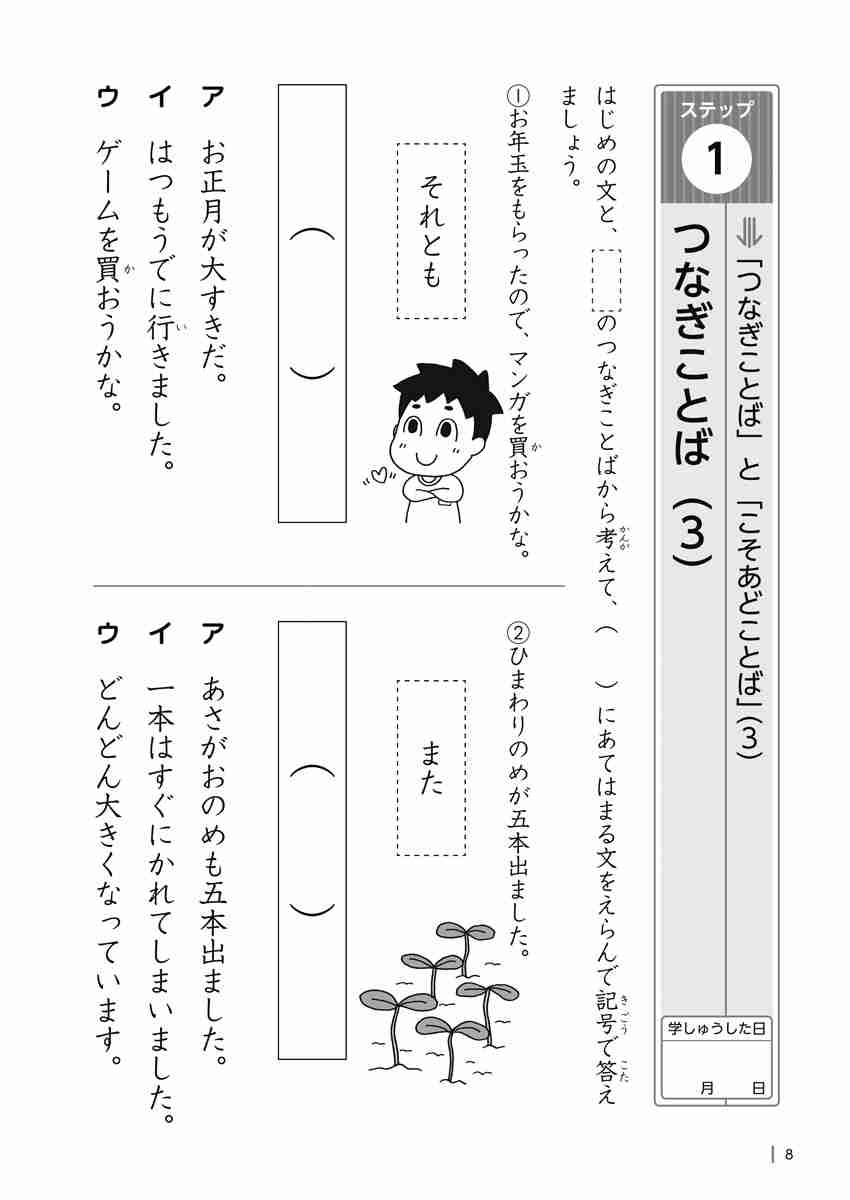 ステップ
1
「つなぎことば」と「こそあどことば」(3)
つなぎことば(3)
学しゅうした日
月 日
はじめの文と、 のつなぎことばから考えて、( )にあてはまる文をえらんで記号で答え
かんが
きごう
こた
ましょう。
①お年玉をもらったので、マンガを買おうかな。
か
それとも
( )
ア お正月が大すきだ。
イ はつもうでに行きました。
い
ウ ゲームを買おうかな。
か
②ひまわりのめが五本出ました。
また
( )
ア あさがおのめも五本出ました。
イ 一本はすぐにかれてしまいました。
ウ どんどん大きくなっています。
8